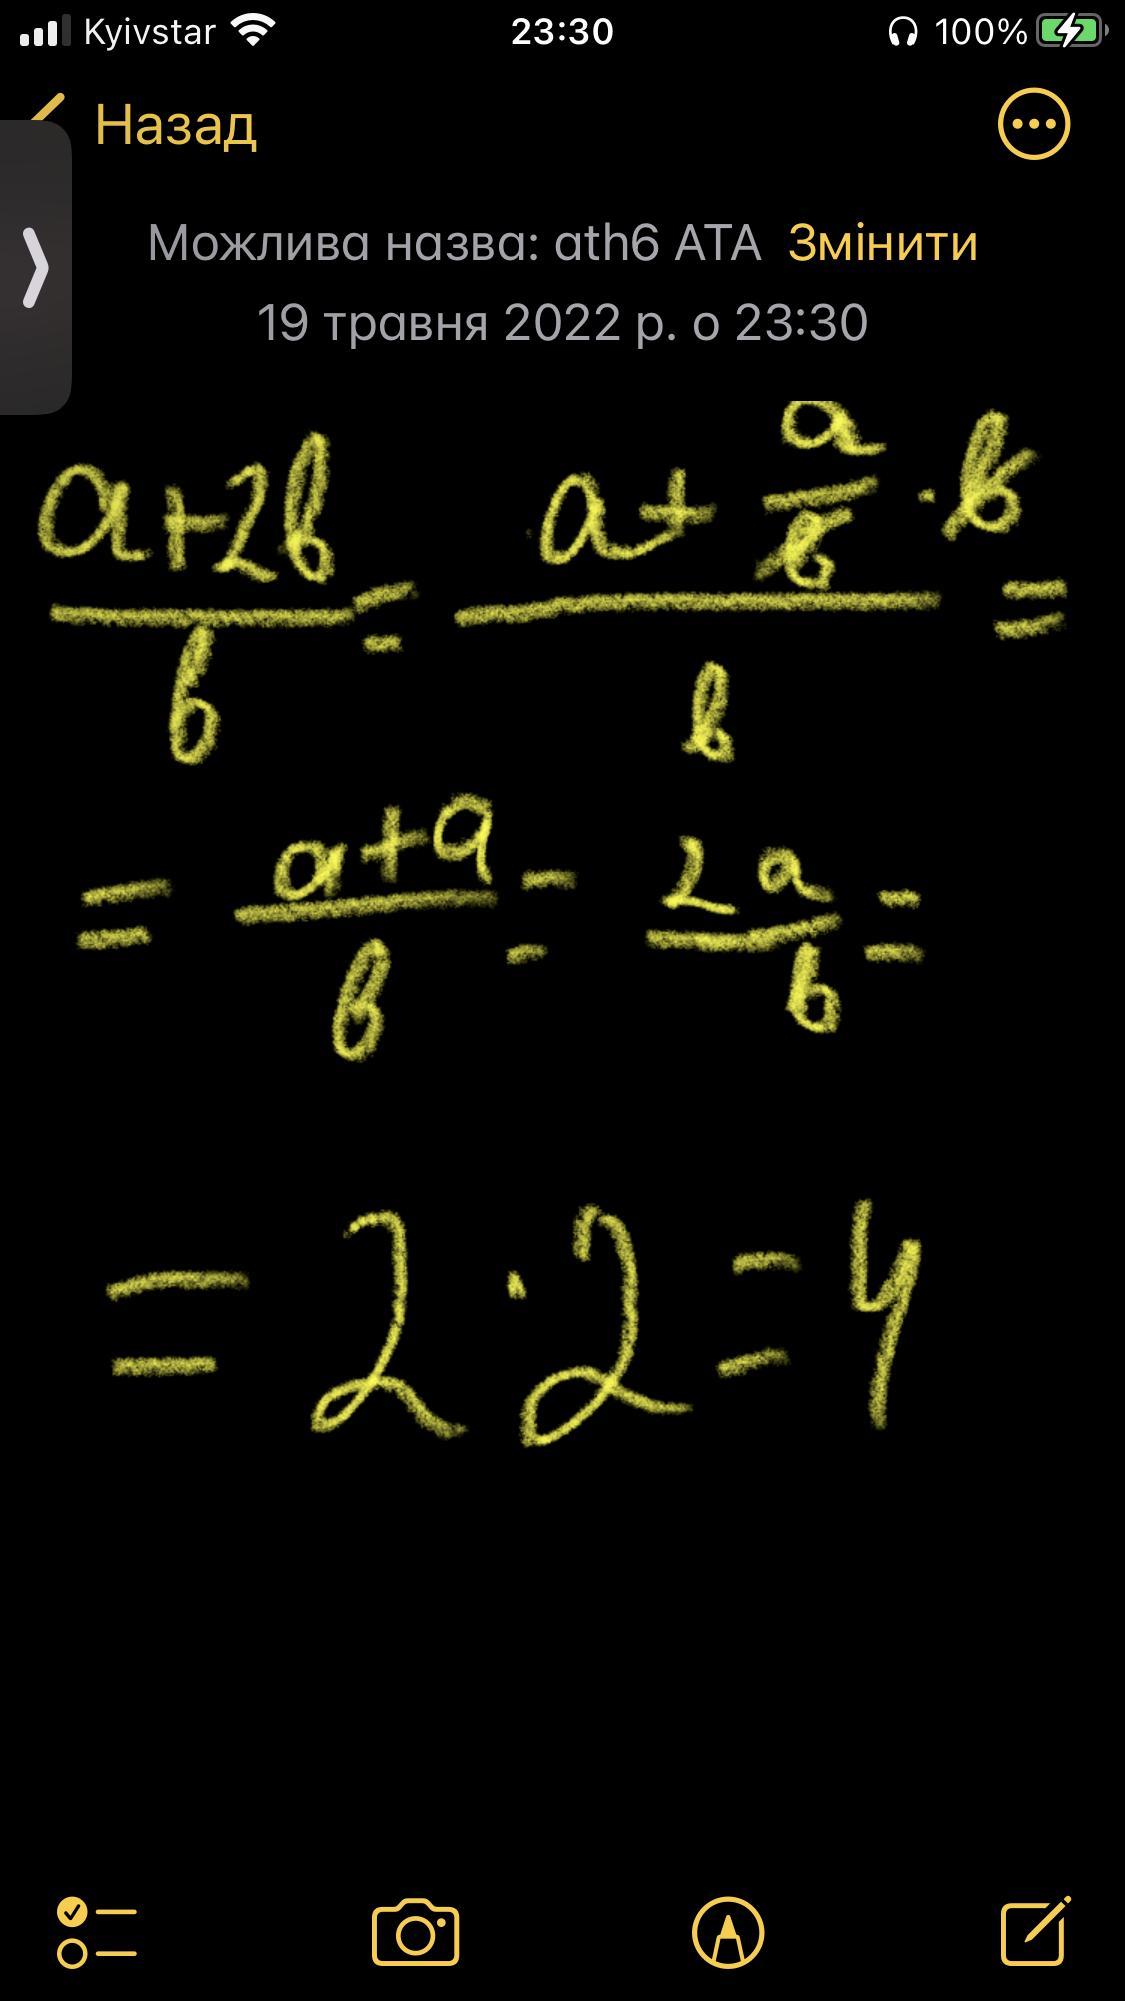 Kyivstar 23:30 100%
Назад
Можлива назва: ath6 ATA Змінити
19 травня 2022 р. о 23:30
(a+2b)/b = (a + a/b · b)/b =
= (a+a)/b = 2a/b =
= 2 · 2 = 4